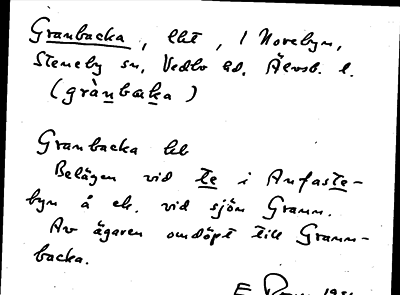 Granbacka, lht, i Norebyn,
Steneby sn, Vedbo hd, Älvsb. l.
(grànbaka)
Granbacka lht
Belägen vid te i Anfaste-
byn å ek. vid sjön Grann.
Av ägaren omdöpt till Grann-
backa.